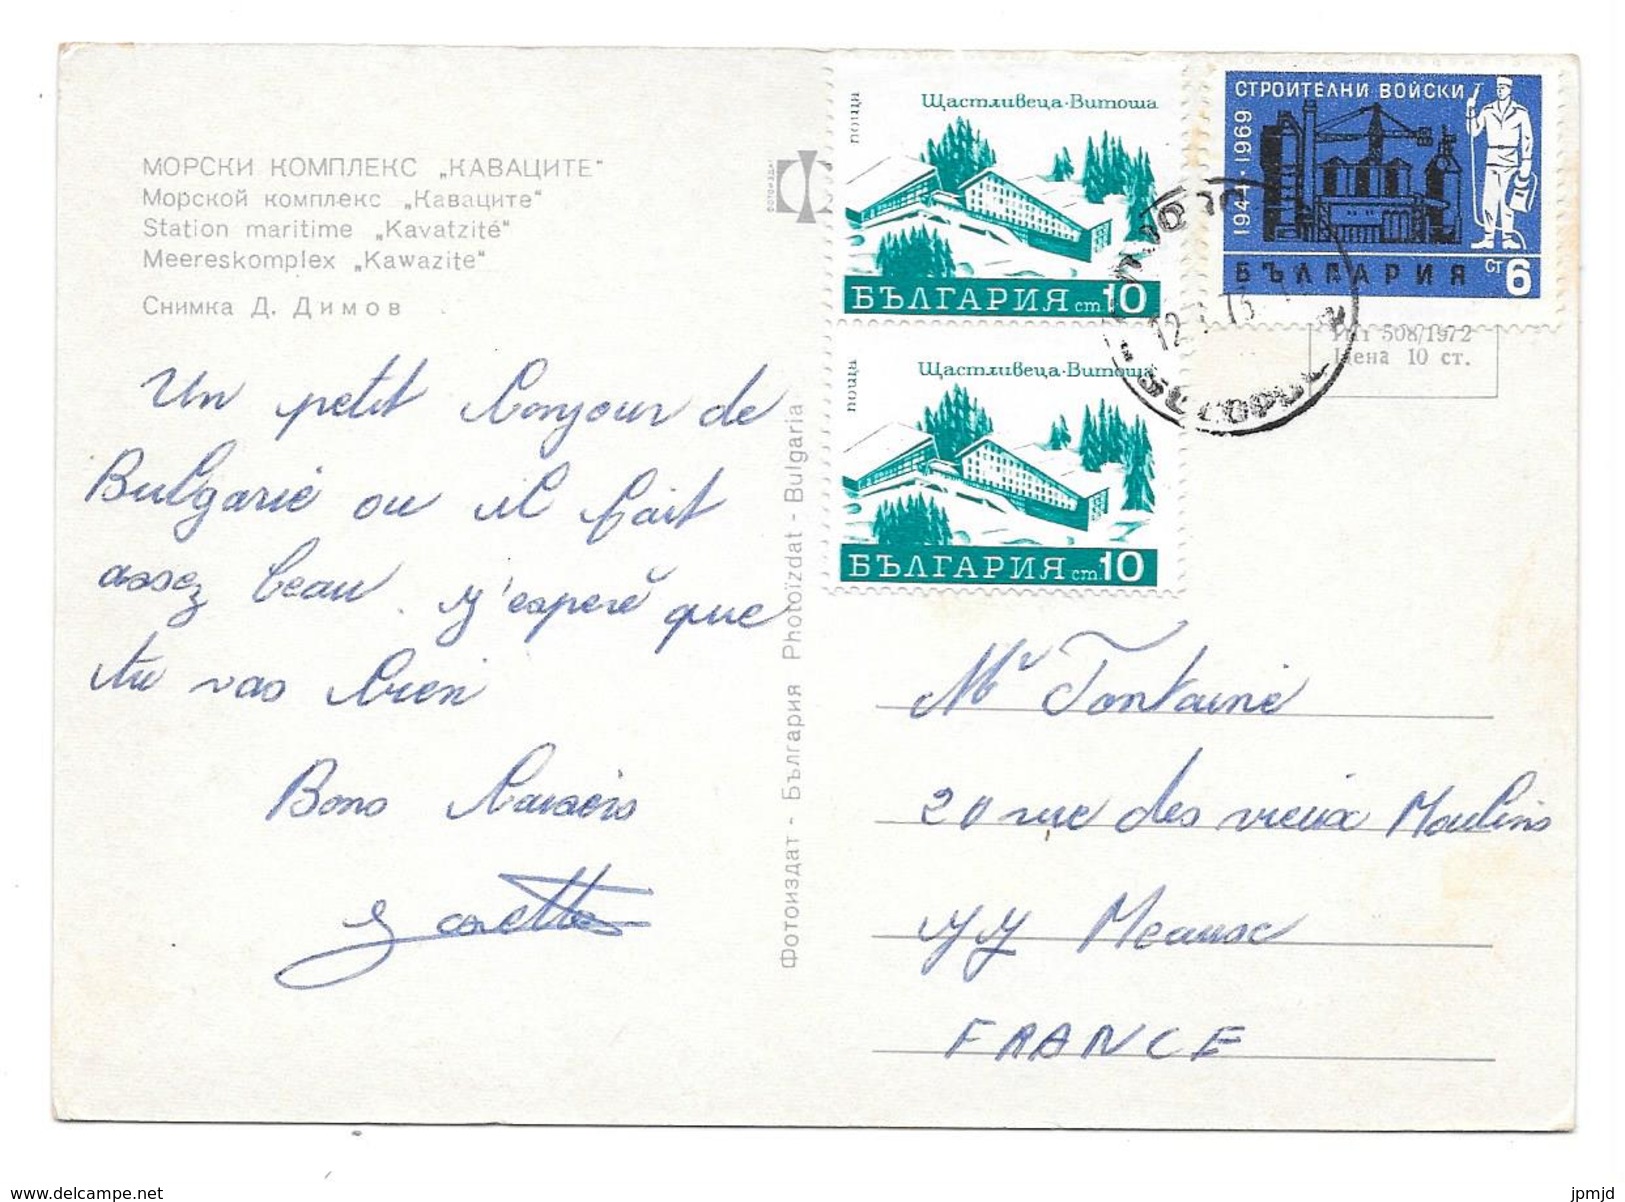 МОРСКИ КОМПЛЕКС „КАВАЦИТЕ"
Морской комплекс „Каваците"
Station maritime „Kavatzité"
Meereskomplex „Kawazite"
Снимка Д. Димов
Un petit bonjour de
Bulgarie ou il fait
assez beau. j'espere que
tu vas bien
Bons baisers
ФОТОИЗДАТ
Фотоиздат - България Photoïzdat - Bulgaria
поща
Щастливеца·Витоша
БЪЛГАРИЯ ст. 10
поща
Щастливеца·Витоша
БЪЛГАРИЯ ст. 10
СТРОИТЕЛНИ ВОЙСКИ
1944·1969
БЪЛГАРИЯ СТ 6
508/1972
Цена 10 ст.
Mr Fontaine
20 rue des vieux Moulins
77 Meaux
FRANCE
delcampe.net
jpmjd